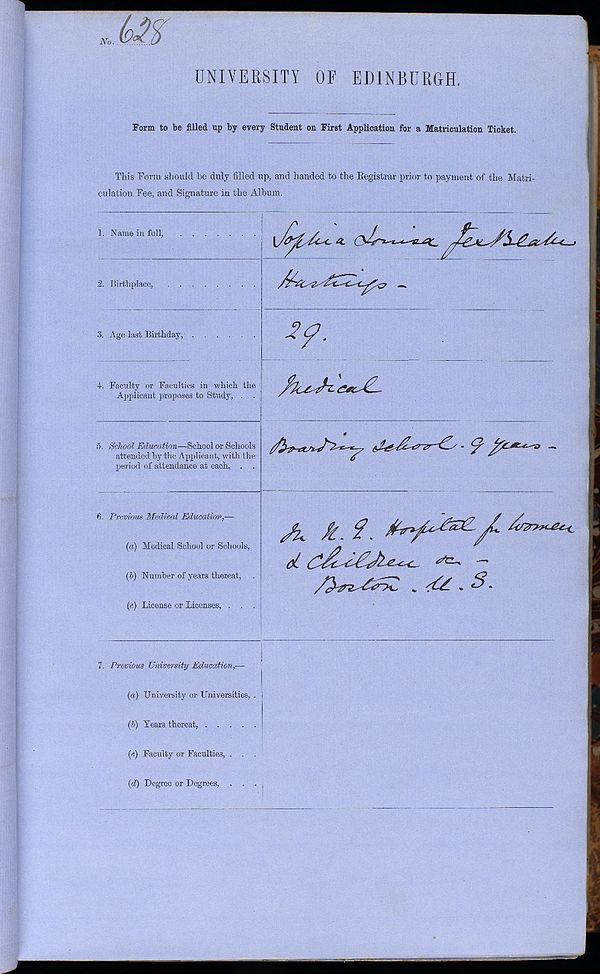 No. 628
UNIVERSITY OF EDINBURGH.
Form to be filled up by every Student on First Application for a Matriculation Ticket.
This Form should be duly filled up, and handed to the Registrar prior to payment of the Matri-
culation Fee, and Signature in the Album.
1. Name in full, . . . . . . . Sophia Louisa Jex Blake
2. Birthplace, . . . . . . . . Hastings -
3. Age last Birthday, . . . . . . 29.
4. Faculty or Faculties in which the
Applicant proposes to Study, . . Medical
5. School Education—School or Schools
attended by the Applicant, with the
period of attendance at each, . . Boarding School. 9 years -
6. Previous Medical Education,—
(a) Medical School or Schools,
(b) Number of years thereat, .
(c) License or Licenses, . . .
In N. E. Hospital for Women
& Children &c -
Boston. U. S.
7. Previous University Education,—
(a) University or Universities, .
(b) Years thereat, . . . . .
(c) Faculty or Faculties, . . .
(d) Degree or Degrees, . . .